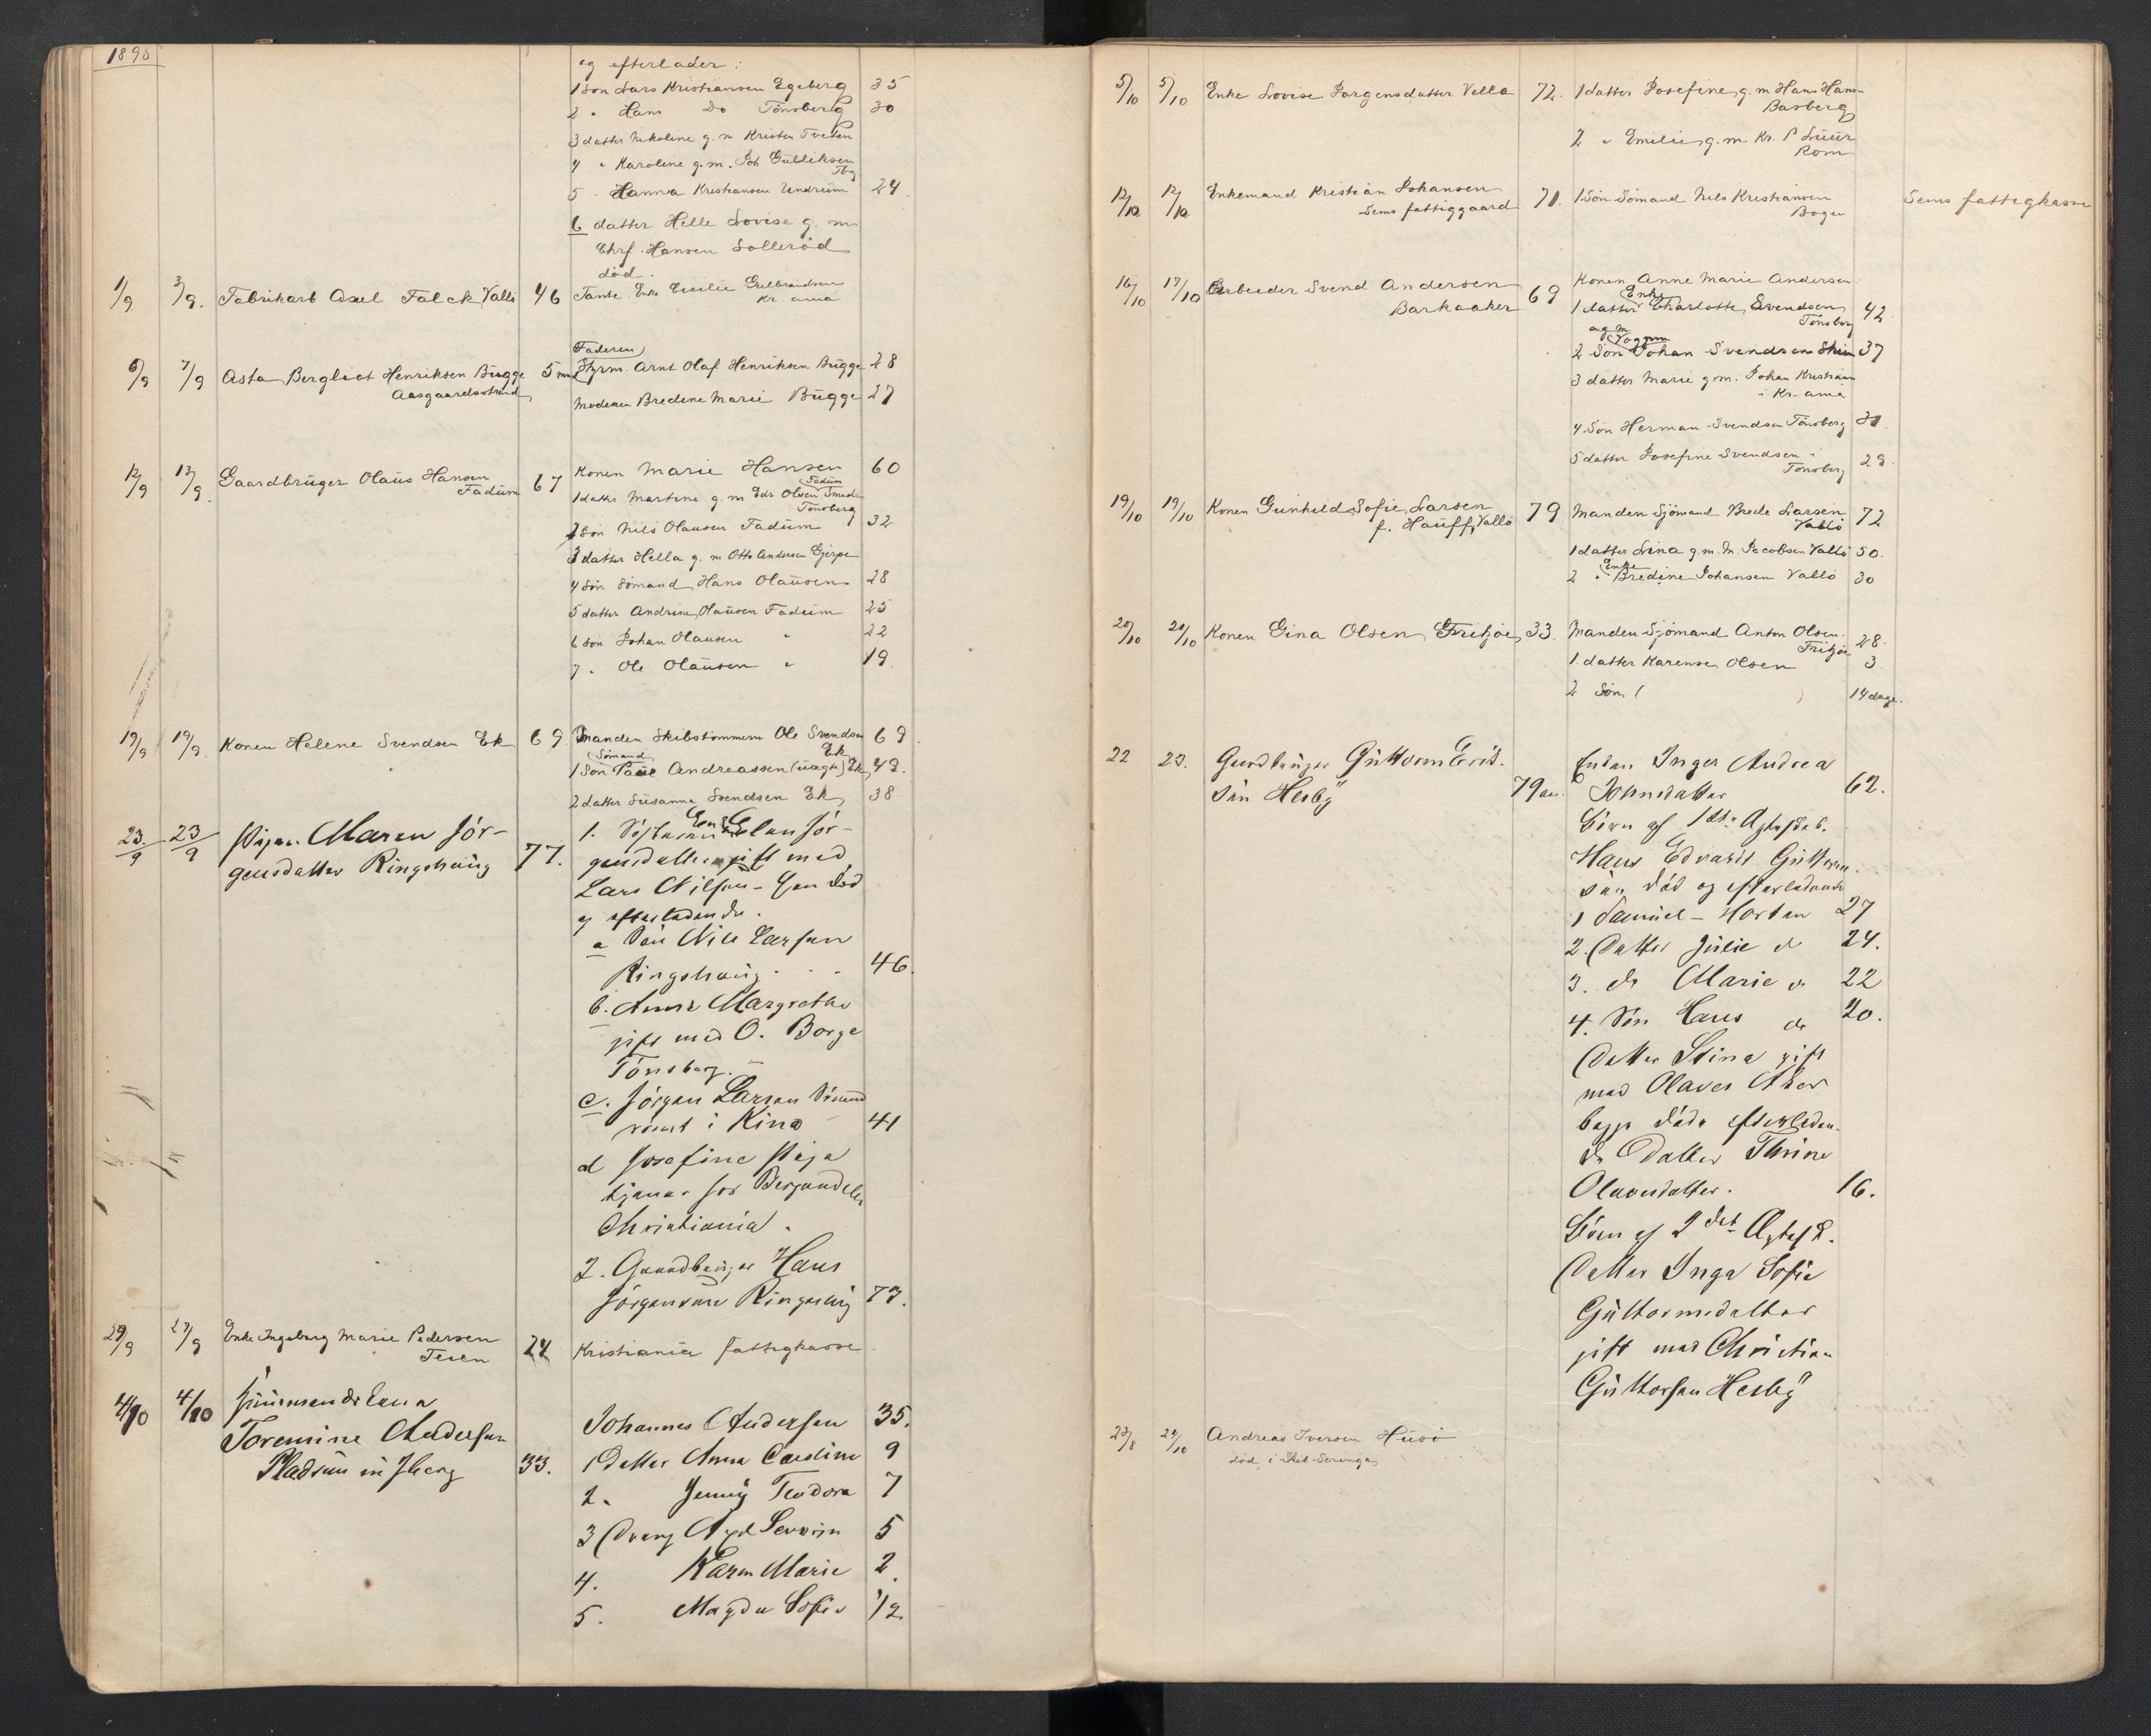 1895
og efterlader:
1 Søn Lars Kristiansen Egeberg 35
2 " Hans Do Tönsberg 30
3 datter Nikoline g. m Kristen Tveten
4 " Karoline g. m. Joh Gulliksen Tbg
5 Hanna Kristiansen Undrum 24
6 datter Helle Lovise g. m
Chrf. Hansen Solleröd
död.
1/9 3/9. Fabrikarb Axel Falck Vallö 46 Tante. Enke Cecilie Gulbrandsen
Kr. ania
6/9 7/9 Asta Bergliot Henriksen Bugge 5 mnd
Aasgaardsstrand
Faderen
Styrm. Arnt Olaf Henriksen Bugge 28
Moderen Bredine Marie Bugge 27
12/9 13/9. Gaardbruger Olaus Hansen
Fadum 67
Konen Marie Hansen 60
Fadum
1 datter Martine g. m Edv Olsen Smed
Tönsberg
2 Søn Nils Olausen Fadum 32
3 datter Hella g. m Otto Andersen Gjerpe
4 Søn Sömand Hans Olausen 28
5 datter Andrine Olausen Fadum 25
6 Søn Johan Olausen " 22
7 " Ole Olausen " 19
19/9 19/9 Konen Helene Svendsen Ek 69 Manden Skibstömmerm Ole Svendsen 69
Ek
Sömand
1 Søn Paul Andreassen (uægte) Ek 43.
2 datter Susanna Svendsen Ek 38
23/9 23/9 Pigen Maren Jör-
gensdatter Ringshaug 77.
1. Søsteren Enke Elen Jör-
gensdatter gift med
Lars Nilsen
og efterladende.
a Sön Nils Larsen
Ringshaug. 46.
b. Anne Margrethe
gift med O. Borge
Tönsberg.
c. Jörgen Larsen Sömand
i Kina 41
d Josefine Pige
tjener for
Christiania.
2. Gaardbruger Hans
Jörgensen Ringshaug 73.
29/9 29/9 Enke Ingeborg Marie Pedersen
Teien 24 Kristiania fattigkasse
4/10 4/10
Toremine Andersen
33.
Johannes Andersen 35.
1 Datter Anna Caroline 9
2. Jenny Teodora 7
3 Dreng Axel Severin 5
4. Karen Marie 2.
5. Magda Sofie 1/2
5/10 5/10 Enke Lovise Jørgensdatter Vallö 72. 1 datter Josefine g. m Hans Hansen
Basberg
2 " Emilie g. m Kr. P Luur
Rom
12/10 12/10 Enkemand Kristian Johansen
Sems fattiggaard 71. 1 Søn Sömand Nils Kristiansen
Bogen
Sems fattigkasse
16/10 17/10 Arbeider Svend Andersen
Barkaaker 69
Konen Anne Marie Andersen
Enke
1 datter Charlotte Svendsen 42
Tönsberg
2 Søn Johan Svendsen Skien 37
3 datter Marie g m. Johan Kristiansen
i Kr. ania
4 Søn Herman Svendsen Tönsberg 31
5 datter Josefine Svendsen i
Tönsberg 23
19/10 19/10 Konen Gunhild Sofie Larsen
f. Hauff, Vallö 79 Manden Sjömand Brede Larsen 72
Vallö
1 datter Lina g. m. M. Jacobsen Vallö 50.
Enke
2 " Bredine Johansen Vallö 30
20/10 20/10 Konen Gina Olsen Fritzøe 33. Manden Sjömand Anton Olsen 28.
Fritzøe
1 datter Karense Olsen 3
2 Søn ( ) 14 dage.
22 23. Gaardbruger Guttorm Erik-
sen Hesby 79 aar.
Enken Inger Andrea
Johnsdatter 62.
Børn af 1ste Ægteskab.
Hans Edvard Guttorm-
sen død og efterladende
1 Samuel - Horten 27
2. Datter Julie do 24.
3. do Marie do 22
4. Søn Hans do 20.
Datter Stina gift
med Olaves Aker
begge døde efterladen-
de Datter Thrine
Olavesdatter. 16.
Børn af 2det Ægtesk.
Datter Inga Sofie
Guttormsdatter
gift med Christian
Guttorsen Hesby
23/8 24/10 Andreas Iversen Husö
död i Skib Seringa